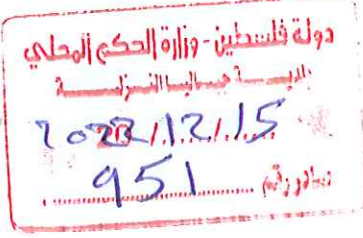 دولة فلسطين - وزارة الحكم المحلي
بلدية جباليا النزلة
2022/12/15
صادر رقم 951